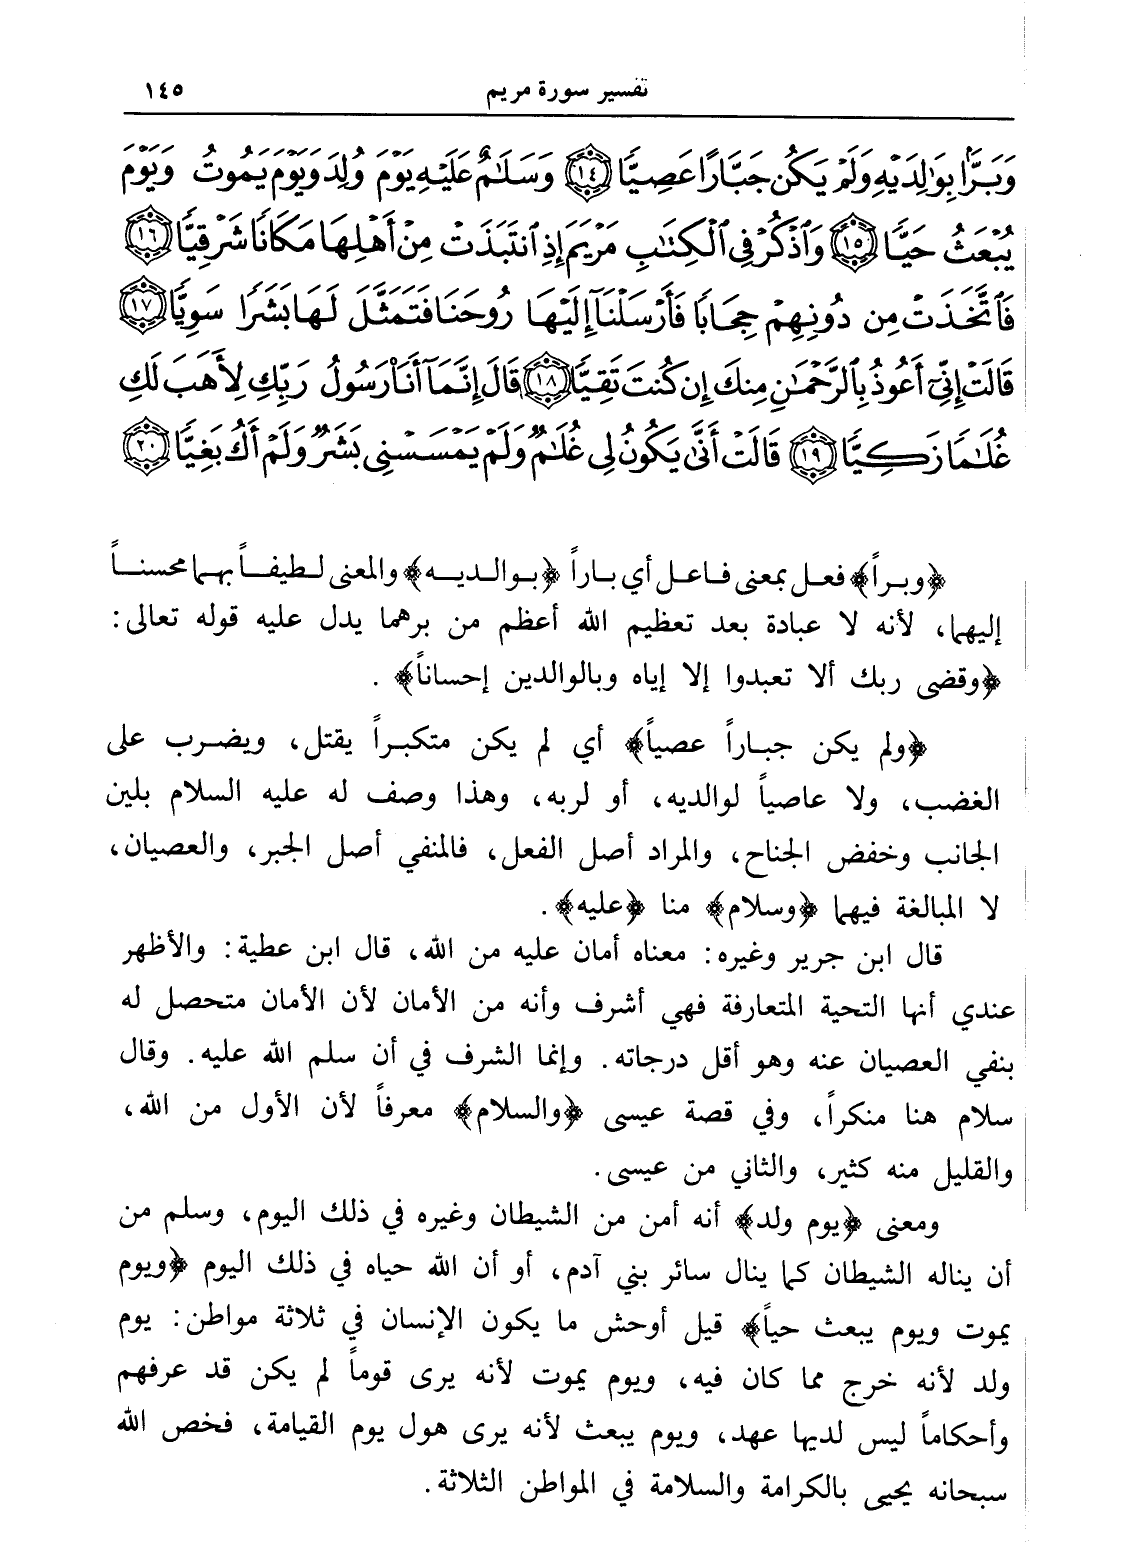 تفسير سورة مريم ١٤٥
وَبَرًّۢا بِوَٰلِدَيْهِ وَلَمْ يَكُن جَبَّارًا عَصِيًّا ١٤ وَسَلَٰمٌ عَلَيْهِ يَوْمَ وُلِدَ وَيَوْمَ يَمُوتُ وَيَوْمَ
يُبْعَثُ حَيًّا ١٥ وَٱذْكُرْ فِى ٱلْكِتَٰبِ مَرْيَمَ إِذِ ٱنتَبَذَتْ مِنْ أَهْلِهَا مَكَانًا شَرْقِيًّا ١٦
فَٱتَّخَذَتْ مِن دُونِهِمْ حِجَابًا فَأَرْسَلْنَآ إِلَيْهَا رُوحَنَا فَتَمَثَّلَ لَهَا بَشَرًا سَوِيًّا ١٧
قَالَتْ إِنِّىٓ أَعُوذُ بِٱلرَّحْمَٰنِ مِنكَ إِن كُنتَ تَقِيًّا ١٨ قَالَ إِنَّمَآ أَنَا۠ رَسُولُ رَبِّكِ لِأَهَبَ لَكِ
غُلَٰمًا زَكِيًّا ١٩ قَالَتْ أَنَّىٰ يَكُونُ لِى غُلَٰمٌ وَلَمْ يَمْسَسْنِى بَشَرٌ وَلَمْ أَكُ بَغِيًّا ٢٠
﴿وبراً﴾ فعل بمعنى فاعل أي باراً ﴿بوالديه﴾ والمعنى لطيفاً بهما محسناً
إليهما، لأنه لا عبادة بعد تعظيم الله أعظم من برهما يدل عليه قوله تعالى:
﴿وقضى ربك ألا تعبدوا إلا إياه وبالوالدين إحساناً﴾ .
﴿ولم يكن جباراً عصياً﴾ أي لم يكن متكبراً يقتل، ويضرب على
الغضب، ولا عاصياً لوالديه، أو لربه، وهذا وصف له عليه السلام بلين
الجانب وخفض الجناح، والمراد أصل الفعل، فالمنفي أصل الجبر، والعصيان،
لا المبالغة فيهما ﴿وسلام﴾ منا ﴿عليه﴾ .
قال ابن جرير وغيره: معناه أمان عليه من الله، قال ابن عطية: والأظهر
عندي أنها التحية المتعارفة فهي أشرف وأنه من الأمان لأن الأمان متحصل له
بنفي العصيان عنه وهو أقل درجاته. وإنما الشرف في أن سلم الله عليه. وقال
سلام هنا منكراً، وفي قصة عيسى ﴿والسلام﴾ معرفاً لأن الأول من الله،
والقليل منه كثير، والثاني من عيسى.
ومعنى ﴿يوم ولد﴾ أنه أمن من الشيطان وغيره في ذلك اليوم، وسلم من
أن يناله الشيطان كما ينال سائر بني آدم، أو أن الله حياه في ذلك اليوم ﴿ويوم
يموت ويوم يبعث حياً﴾ قيل أوحش ما يكون الإنسان في ثلاثة مواطن: يوم
ولد لأنه خرج مما كان فيه، ويوم يموت لأنه يرى قوماً لم يكن قد عرفهم
وأحكاماً ليس لديها عهد، ويوم يبعث لأنه يرى هول يوم القيامة، فخص الله
سبحانه يحيى بالكرامة والسلامة في المواطن الثلاثة.